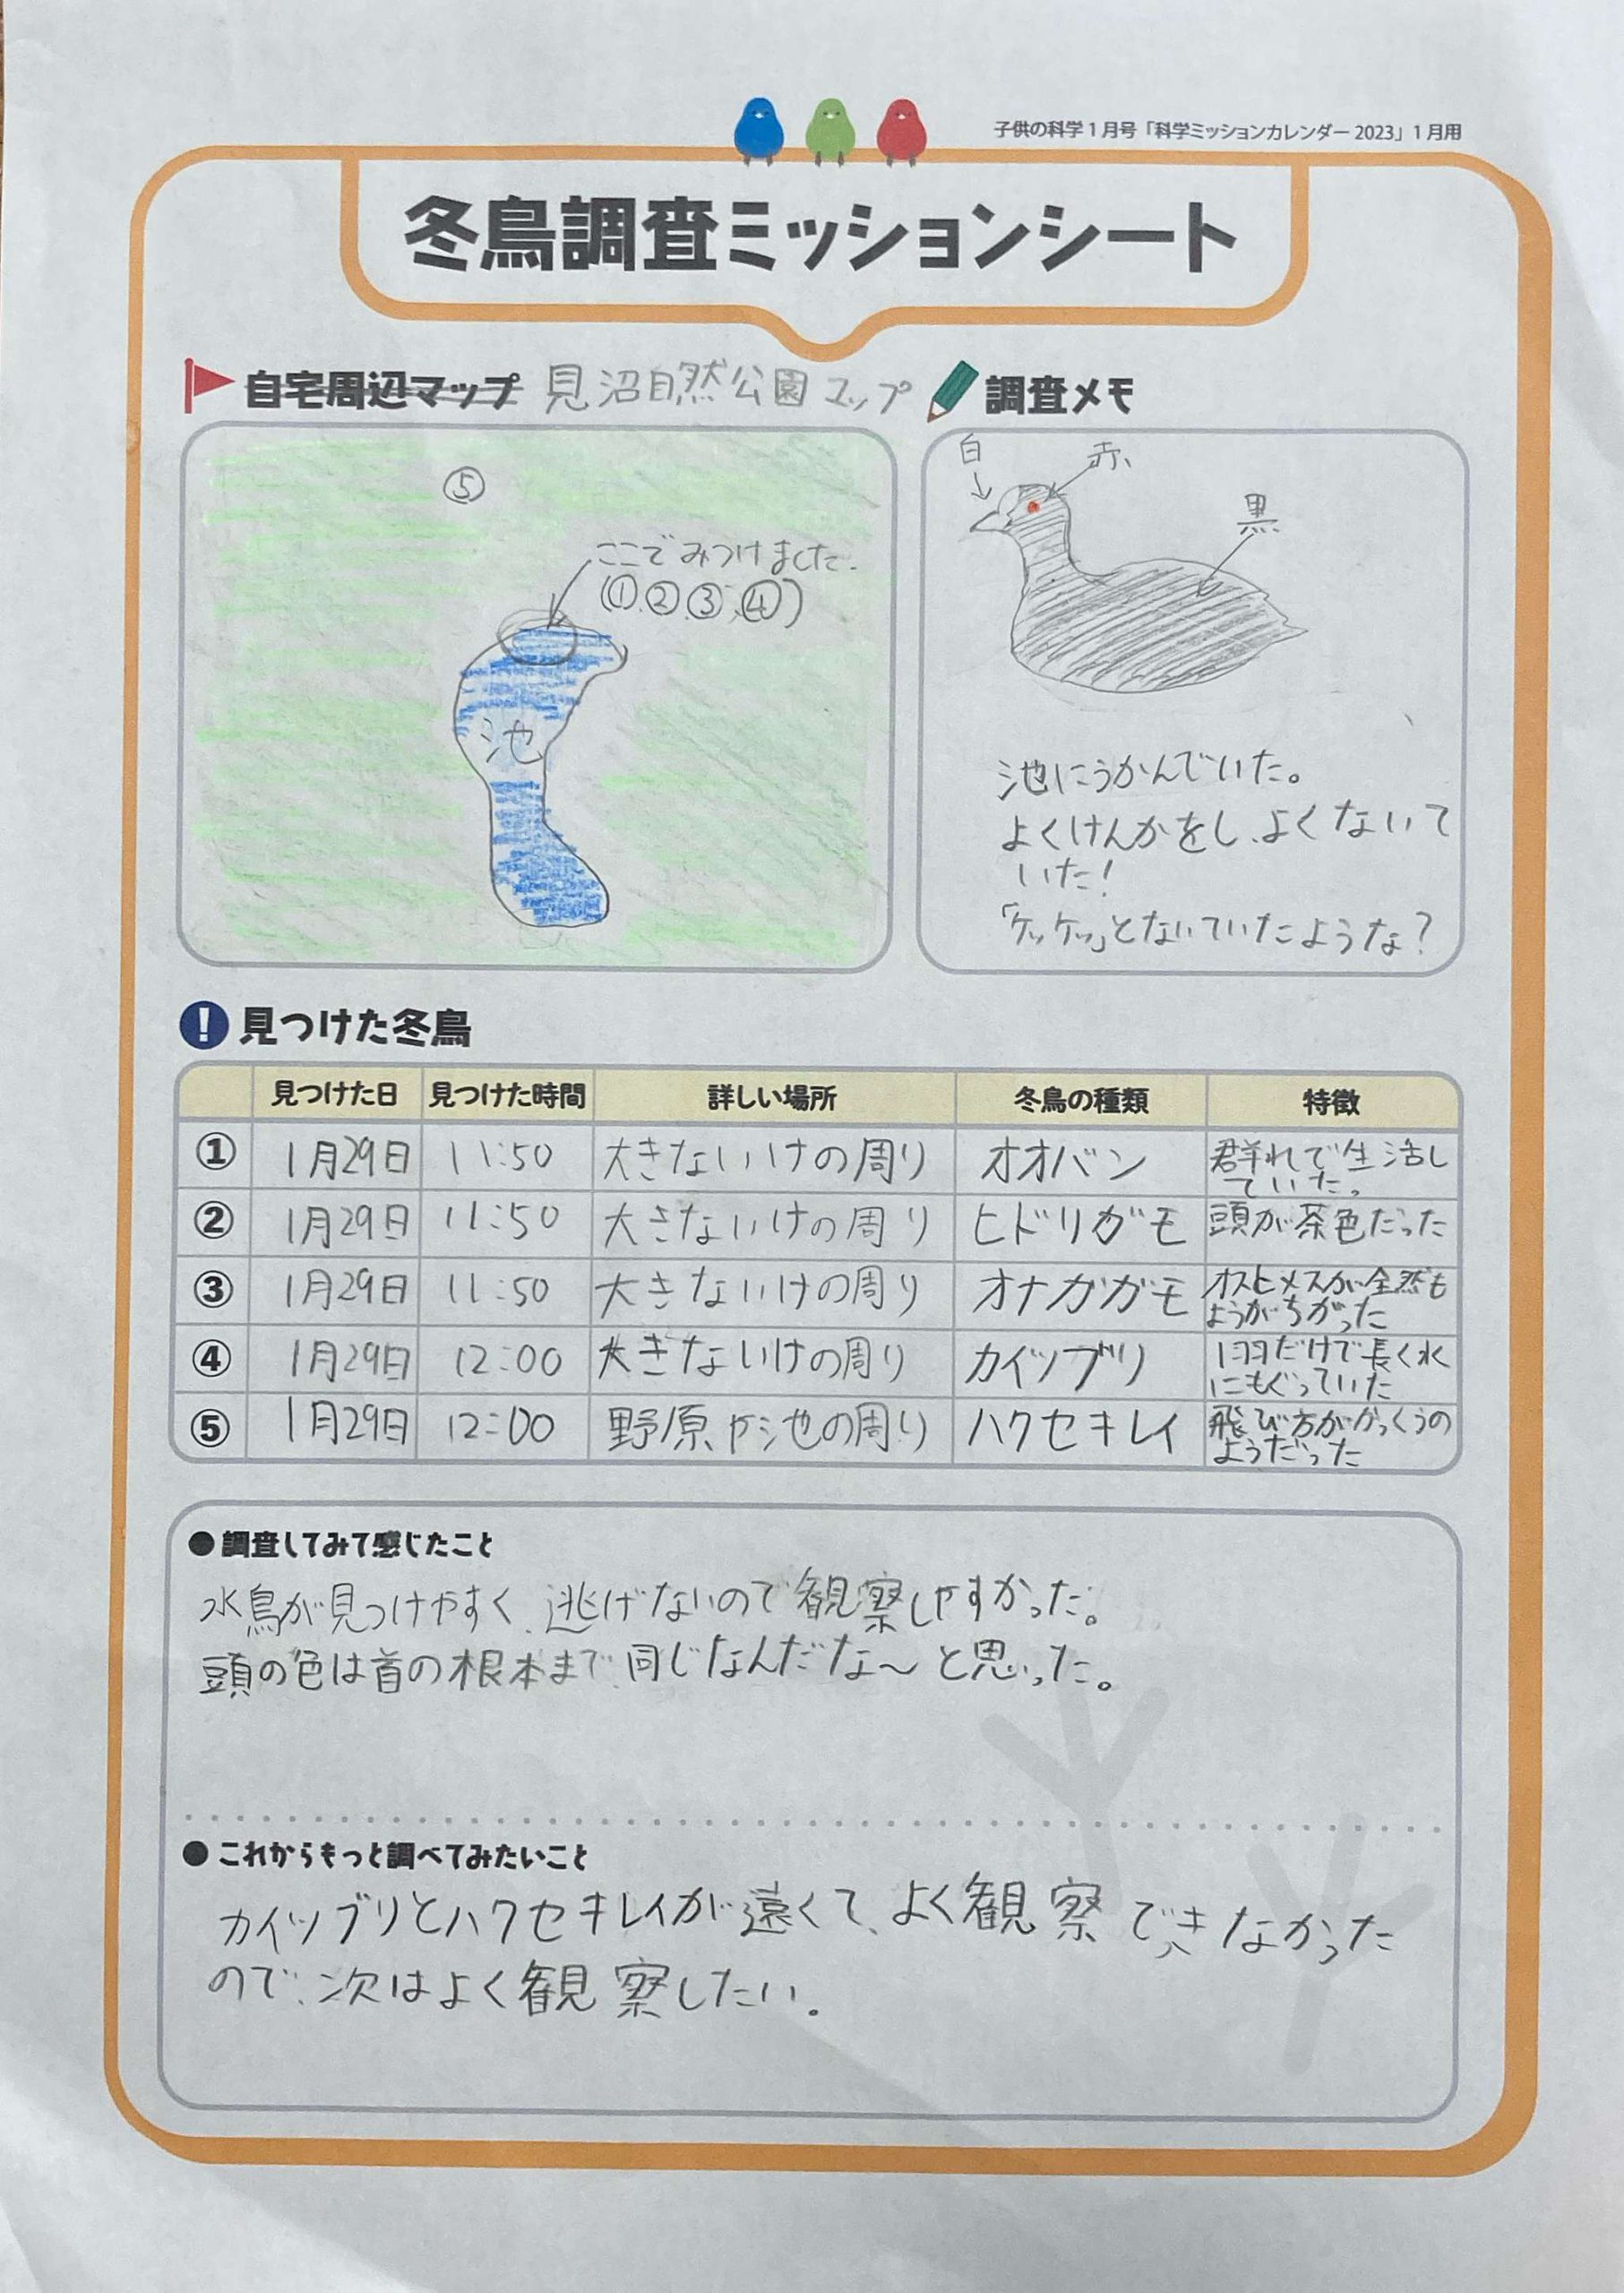 子供の科学1月号「科学ミッションカレンダー2023」1月用
冬鳥調査ミッションシート
自宅周辺マップ 見沼自然公園マップ
⑤
ここでみつけました.
(①,②,③,④)
池
調査メモ
白
赤
黒
池にうかんでいた。
よくけんかをし、よくないて
いた!
「ケッケッ」とないていたような?
! 見つけた冬鳥
見つけた日 見つけた時間 詳しい場所 冬鳥の種類 特徴
① 1月29日 11:50 大きないけの周り オオバン 群れで生活し
ていた。
② 1月29日 11:50 大きないけの周り ヒドリガモ 頭が茶色だった
③ 1月29日 11:50 大きないけの周り オナガガモ オスとメスが全然も
ようがちがった
④ 1月29日 12:00 大きないけの周り カイツブリ 1羽だけで長く水
にもぐっていた
⑤ 1月29日 12:00 野原や池の周り ハクセキレイ 飛び方ががっくうの
ようだった
●調査してみて感じたこと
水鳥が見つけやすく、逃げないので観察しやすかった。
頭の色は首の根本まで同じなんだな〜と思った。
●これからもっと調べてみたいこと
カイツブリとハクセキレイが遠くて、よく観察できなかった
ので、次はよく観察したい.